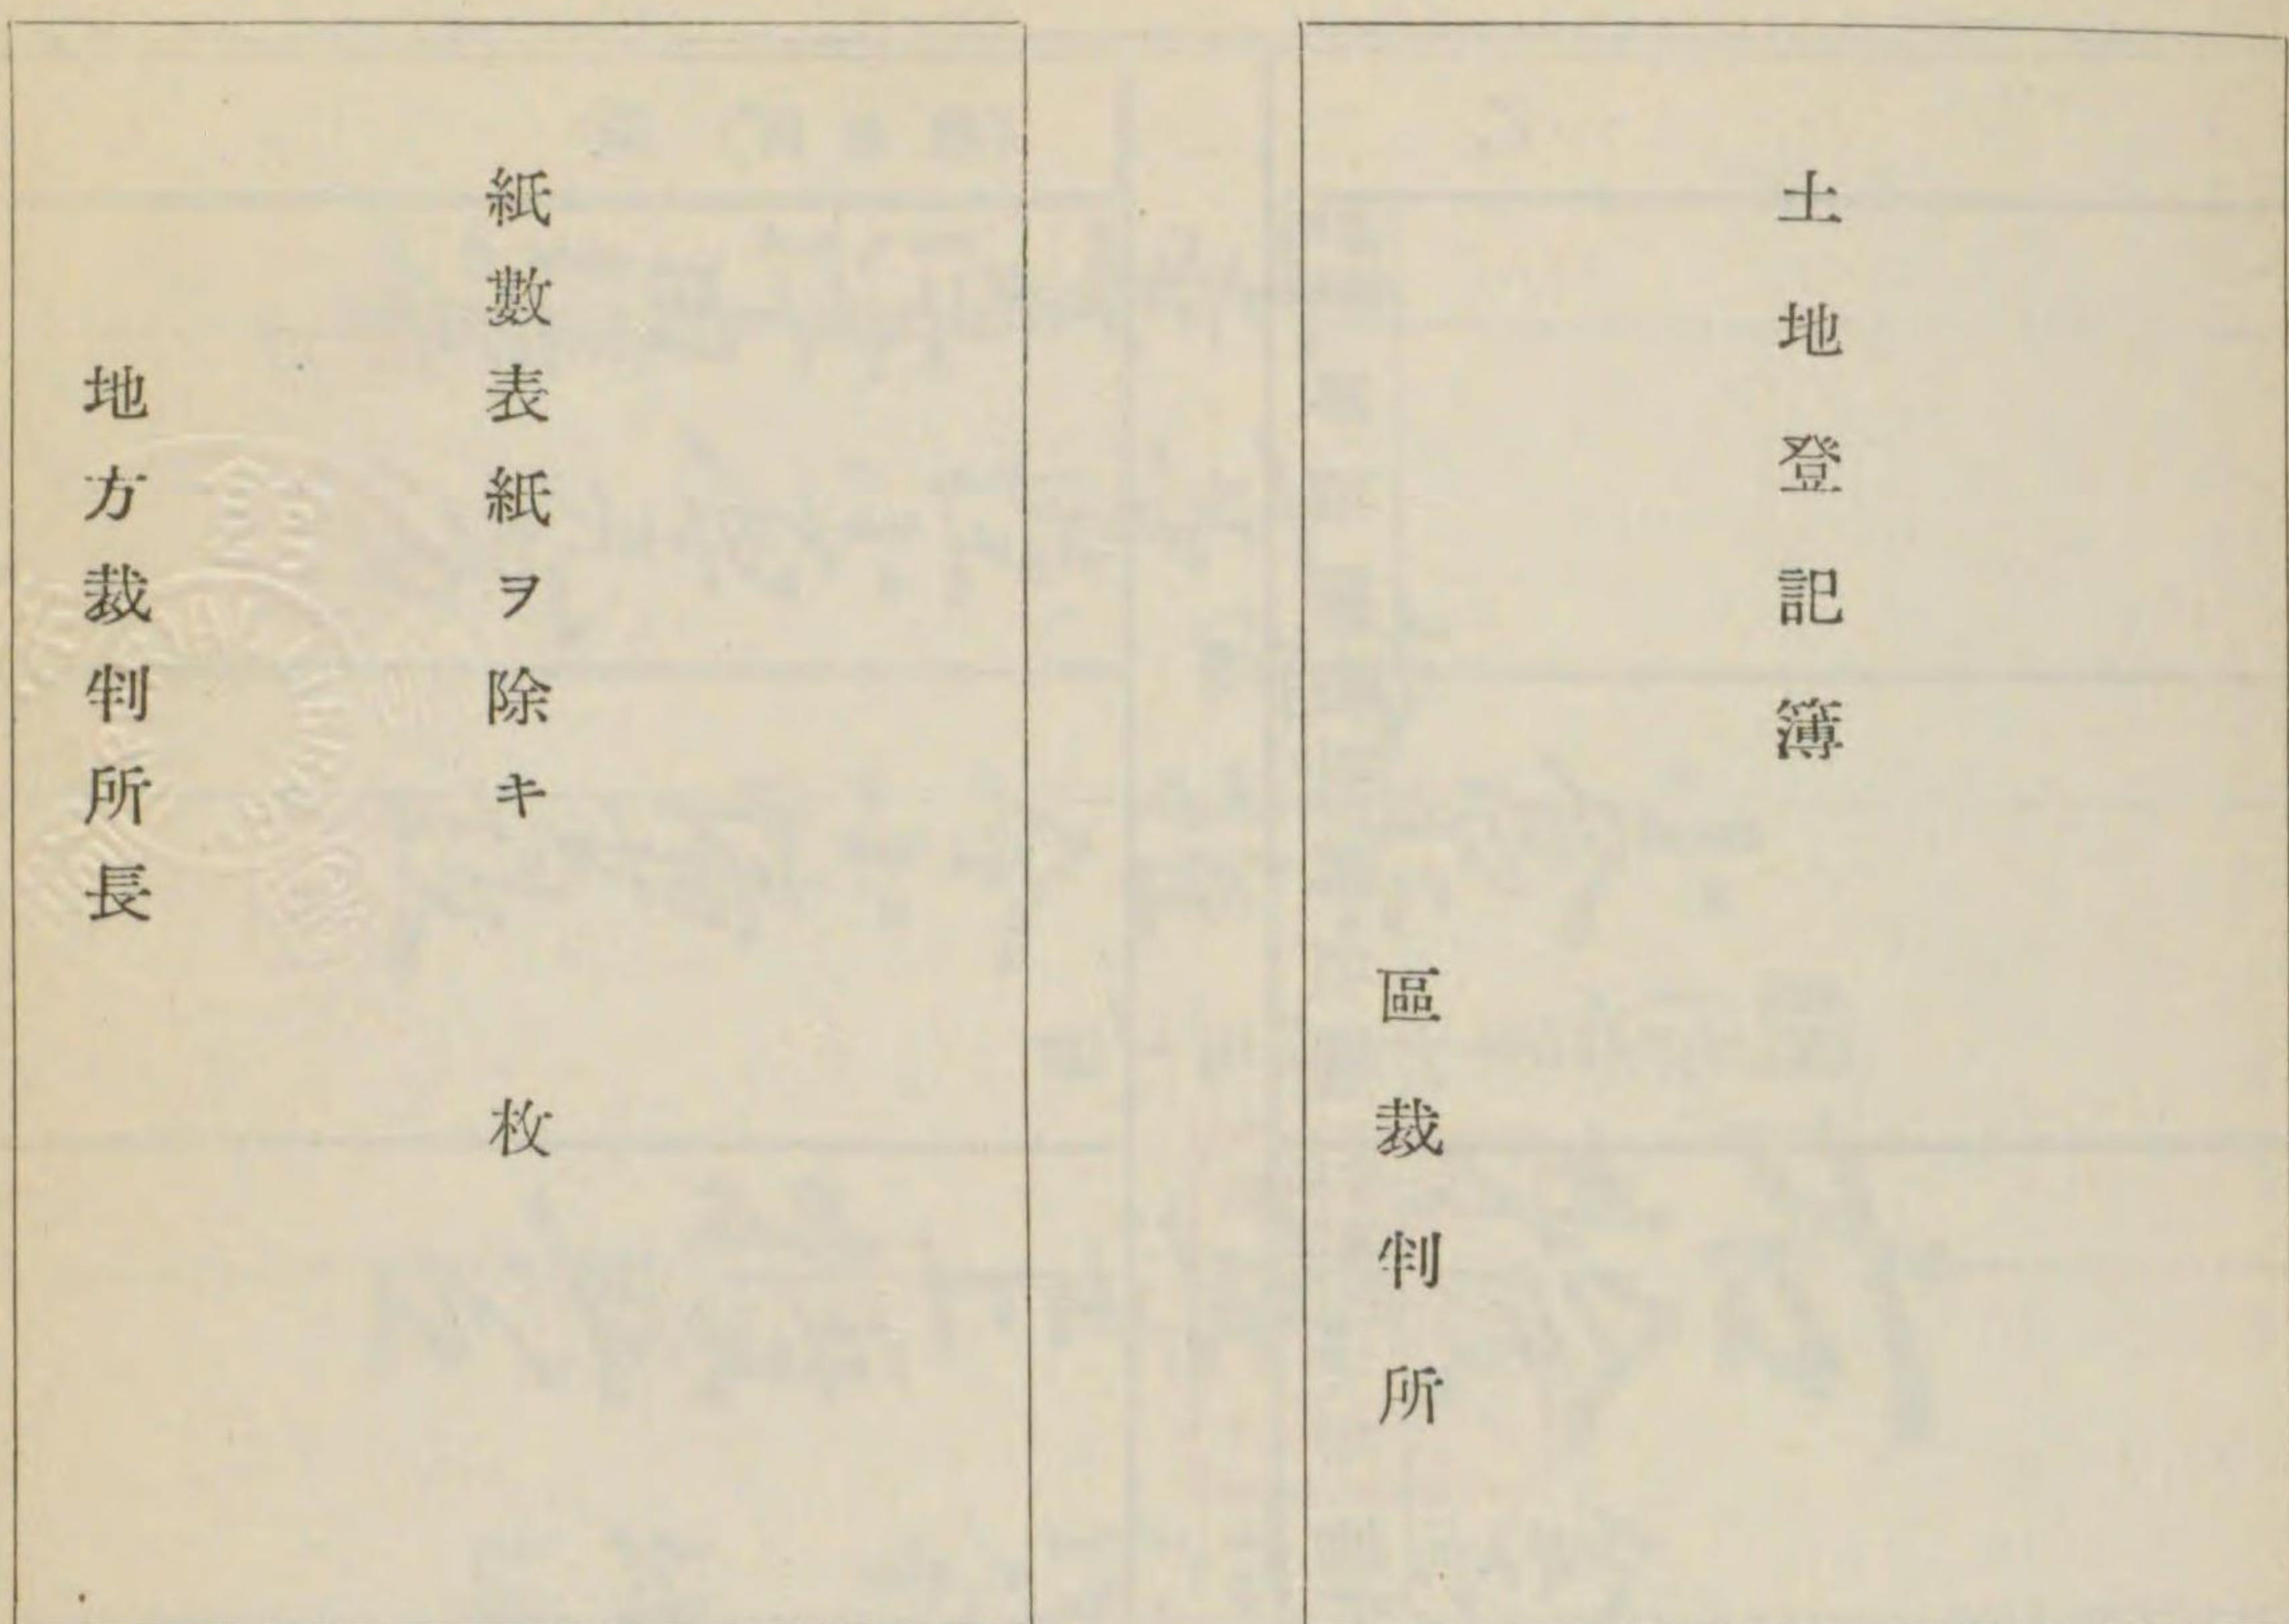 土地登記簿
區裁判所
紙數表紙ヲ除キ　　枚
地方裁判所長